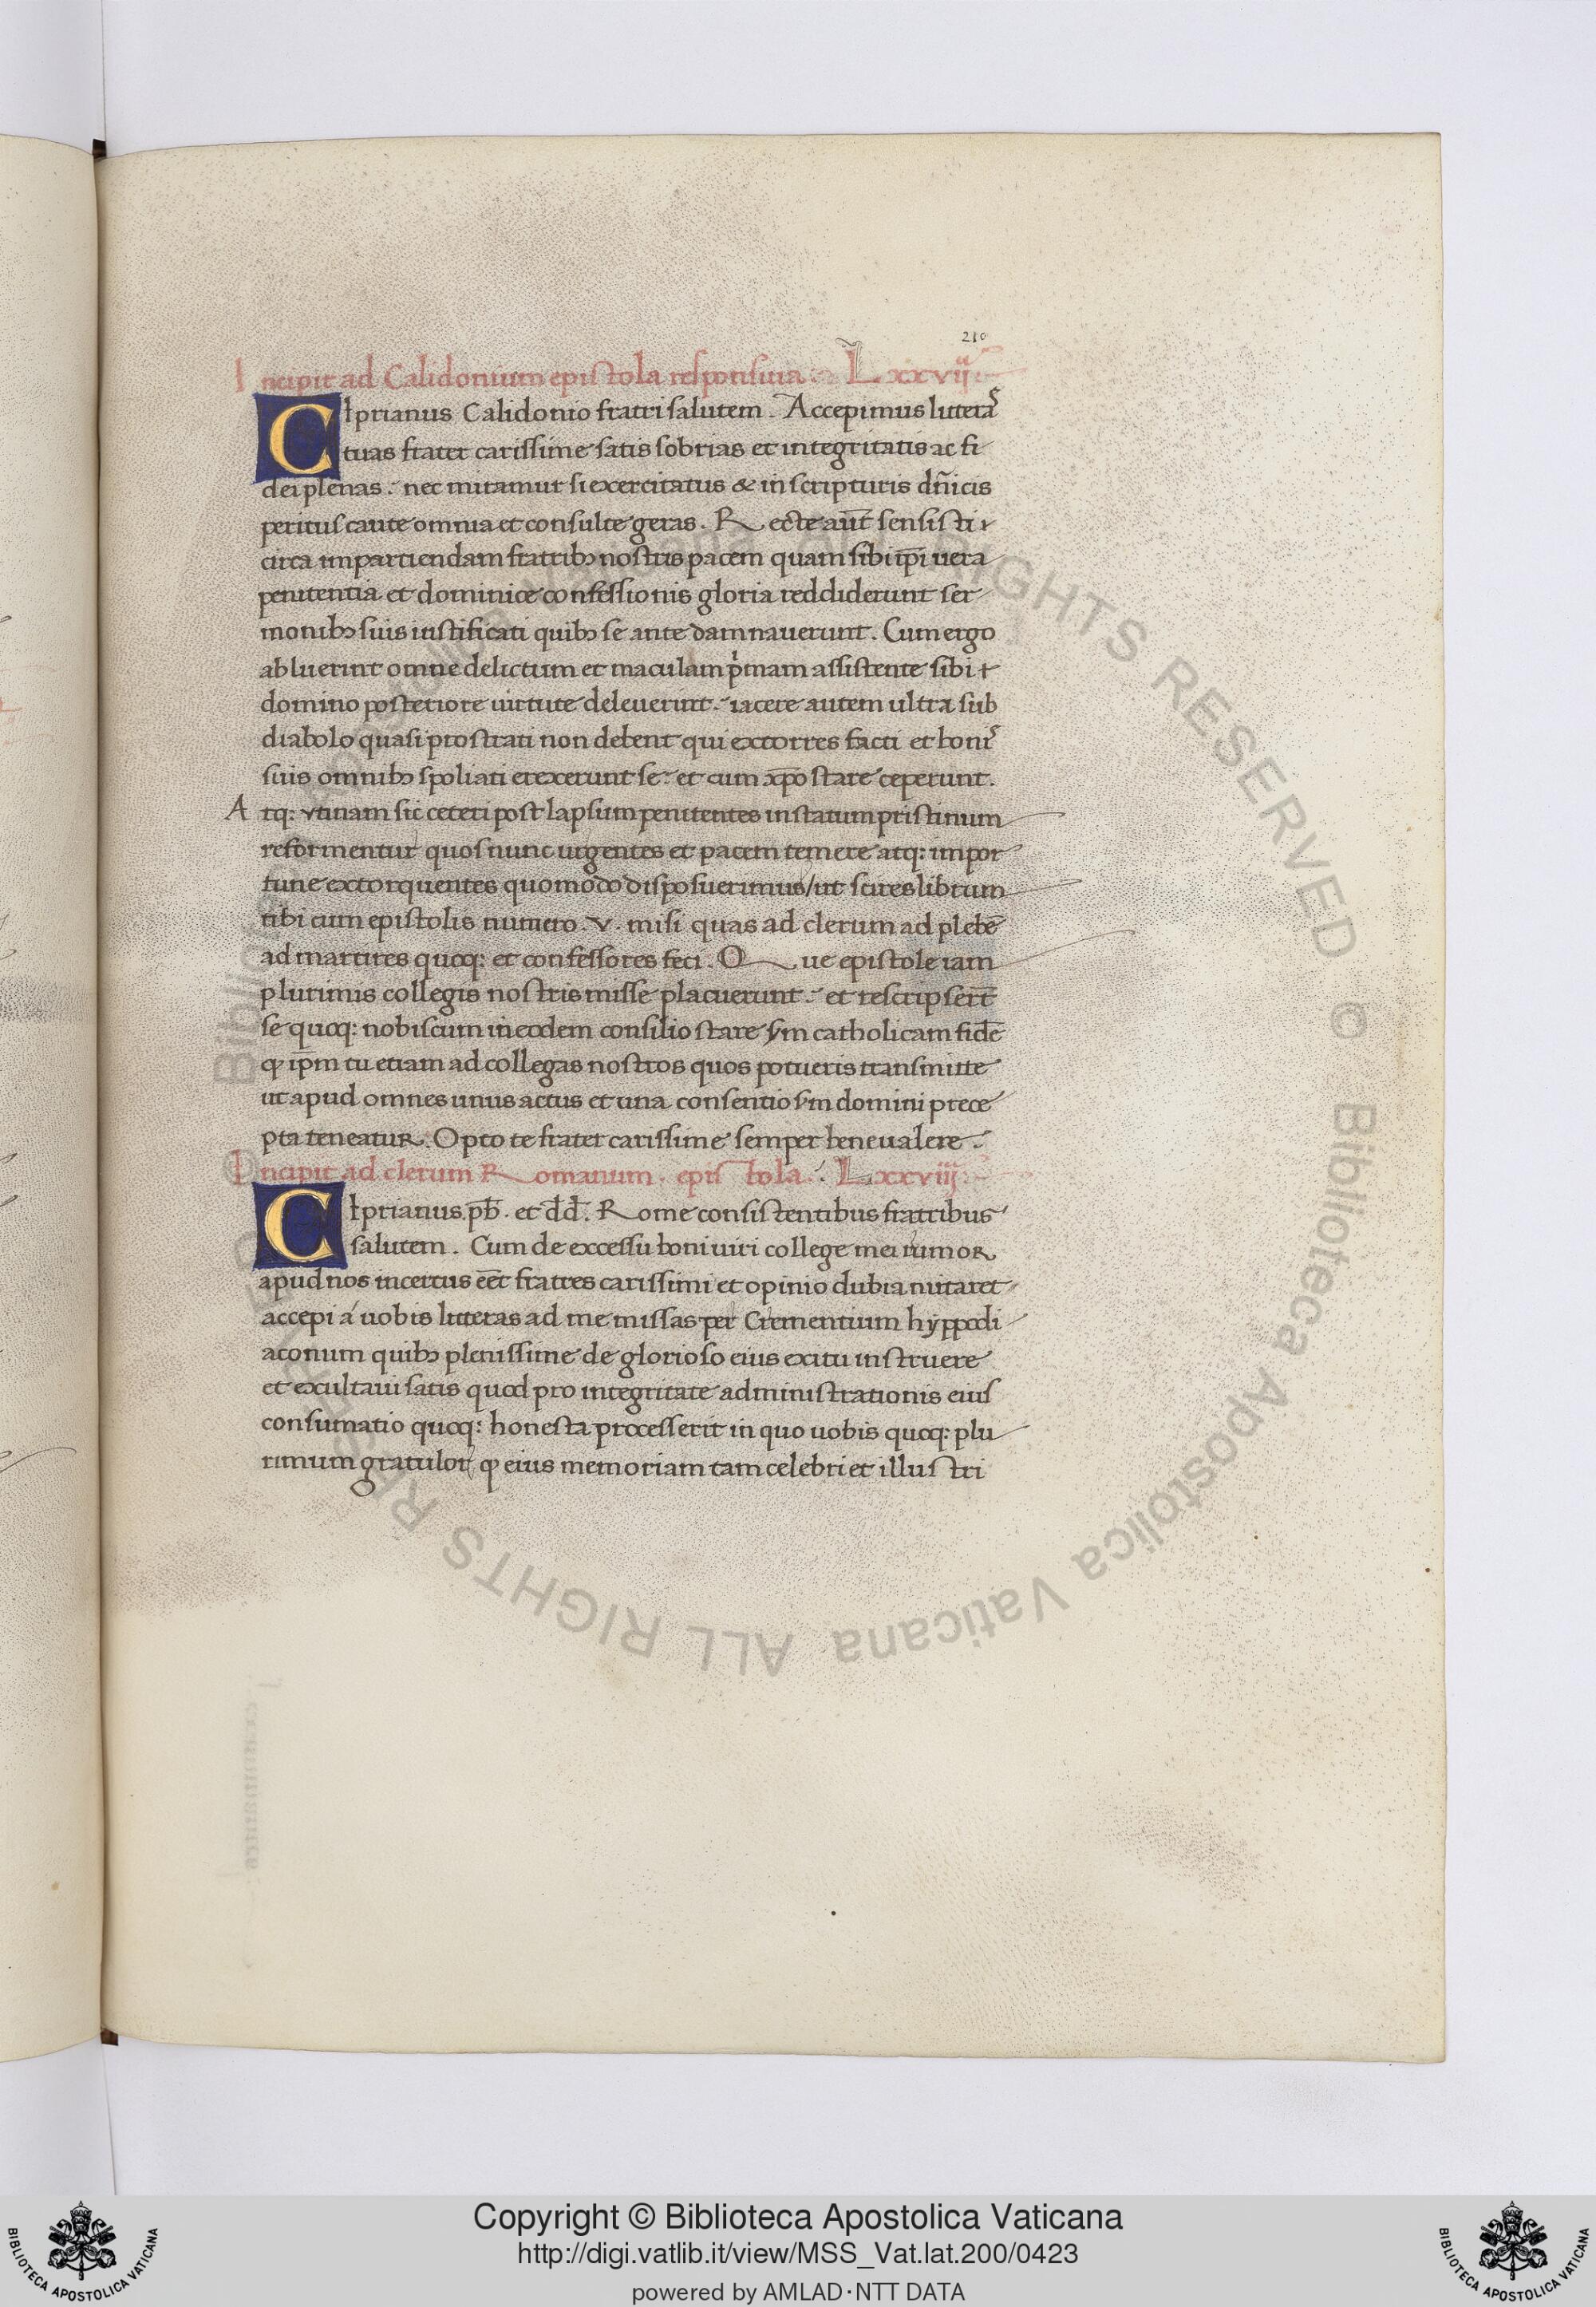 210
Incipit ad Calidonium epistola responsiua. LXXVIJ
CIprianus Calidonio fratri salutem. Accepimus litteras
tuas frater carissime satis sobrias et integritatis ac fi
dei plenas. nec miramur si exercitatus & in scripturis dñicis
peritus caute omnia et consulte geras. Recte aut̄ sensisti
circa impartiendam fratribꝫ nostris pacem quam sibi ip̄i uera
penitentia et dominice confessionis gloria reddiderunt ser
monibꝫ suis iustificati quibꝫ se ante damnauerunt. Cum ergo
abluerint omne delictum et maculam pͥmam assistente sibi
domino posteriore uirtute deleuerint. iacere autem ultra sub
diabolo quasi prostrati non debent qui extorres facti et bonis
suis omnibꝫ spoliati erexerunt se. et cum xp̄o stare ceperunt.
Atq: vtinam sic ceteri post lapsum penitentes in statum pristinum
reformentur quos nunc urgentes et pacem temere atq: impor
tune extorquentes quomodo disposuerimus/ut scires librum
tibi cum epistolis numero .v. misi quas ad clerum ad plebē
ad martires quoq: et confessores feci. Que epistole iam
plurimis collegis nostris misse placuerunt. et rescripserūt
se quoq: nobiscum in eodem consilio stare s̄m catholicam fidē
ꝙ ip̄m tu etiam ad collegas nostros quos potueris transmitte
ut apud omnes unus actus et una consentio s̄m domini prece
pta teneatur. Opto te frater carissime semper bene ualere.
Incipit ad clerum Romanum. epistola. LXXVIIJ
CIprianus pb̄. et d̄d̄. Rome consistentibus fratribus
salutem. Cum de excessu boni uiri college mei rumor
apud nos incertus eēt fratres carissimi et opinio dubia nutaret
accepi á uobis litteras ad me missas per Crementium hyppodi
aconum quibꝫ plenissime de glorioso eius exitu instruere
et exultaui satis quod pro integritate administrationis eius
consumatio quoq: honesta processerit in quo uobis quoq: plu
rimum gratulor ꝙ eius memoriam tam celebri et illustri
Biblioteca Apostolica Vaticana ALL RIGHTS RESERVED ©
Copyright © Biblioteca Apostolica Vaticana
http://digi.vatlib.it/view/MSS_Vat.lat.200/0423
powered by AMLAD·NTT DATA
BIBLIOTECA APOSTOLICA VATICANA
BIBLIOTECA APOSTOLICA VATICANA